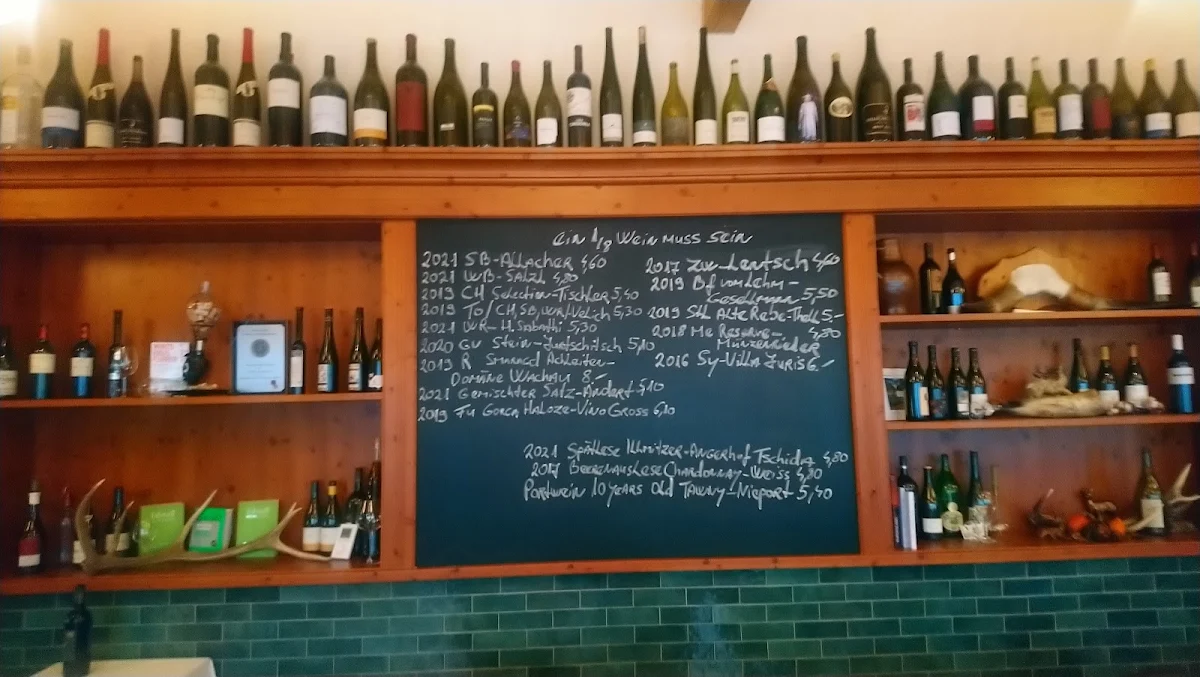 ein 1/8 Wein muss sein
2021 SB-Allacher 4,60
2021 WB-Salzl 4,80
2019 CH Selection-Tischler 5,40
2019 To/CH,SB,WR/Velich 5,30
2021 WR-H. Sabathi 5,30
2020 GV Stein-Jurtschitsch 5,10
2019 R Smaragd Achleiten-
Domäne Wachau 8,-
2021 Gemischter Satz-Andert 5,10
2019 Fu Gorca Haloze-Vino Gross 6,10
2017 ZW-Leutsch 4,60
2019 Bf vom Lehm-
Gesellmann 5,50
2019 Stl Alte Rebe- 5,-
2018 Me Reserve- 4,80
Münzenrieder
2016 Sy-Villa Juris 6,-
2021 Spätlese Illmitzer-Angerhof Tschida 4,80
2017 Beerenauslese Chardonnay-Weiss 4,80
Portwein 10 Years Old Tawny-Nieport 5,40